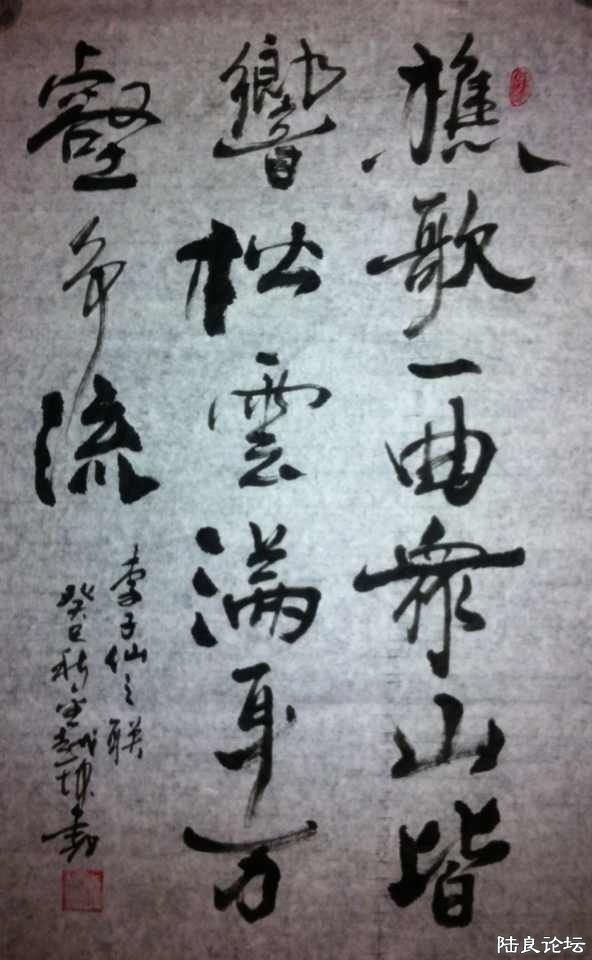 樵歌一曲衆山皆
響松雲滿耳万
壑争流
李子仙之联
癸巳秋
陆良论坛